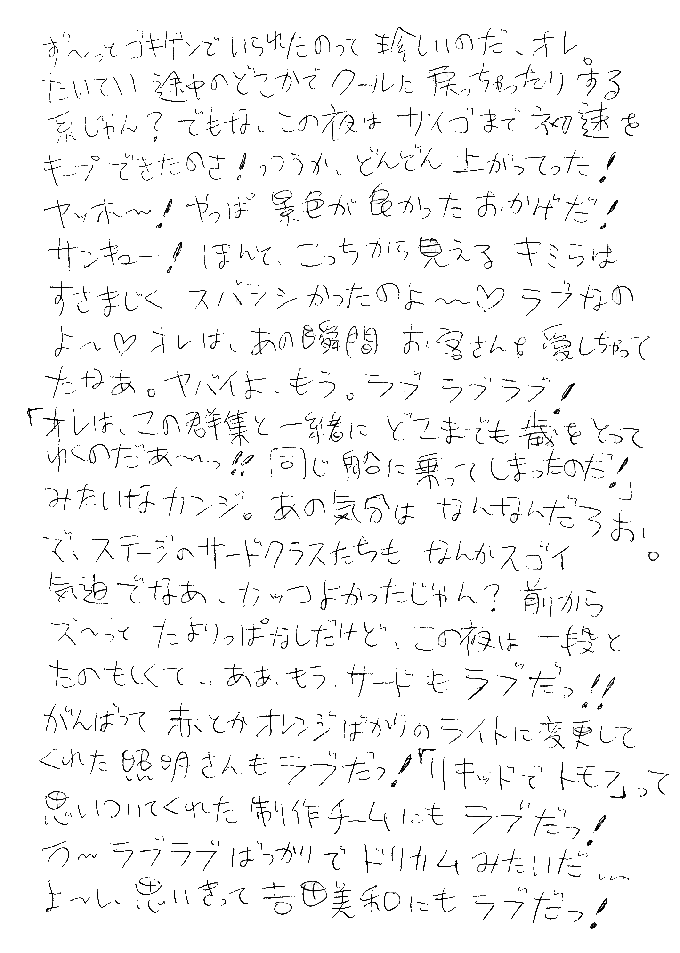 ず〜ってゴキゲンでいられたのって珍しいのだ、オレ。
たいてい途中のどこかでクールに戻っちゃったりする
系じゃん?でもな、この夜はサイゴまで初速を
キープできたのさ!っつうか、どんどん上がってった!
ヤッホ〜!やっぱ景色が良かったおかげだ!
サンキュー!ほんと、こっちから見えるキミらは
すさまじくスバラシかったのよ〜♡ラブなの
よ〜♡オレは、あの瞬間お客さんを愛しちゃって
たなぁ。ヤバイよ、もう。ラブラブラブ!
「オレは、この群集と一緒にどこまでも歳をとって
ゆくのだぁ〜っ!!同じ船に乗ってしまったのだ!」
みたいなカンジ。あの気分はなんなんだろお。
で、ステージのサードクラスたちもなんかスゴイ
気迫でなあ、カッコよかったじゃん?前から
ズ〜ってたよりっぱなしだけど、この夜は一段と
たのもしくて、、ああ、もう、サードもラブだっ!!
がんばって赤とかオレンジばかりのライトに変更して
くれた照明さんもラブだっ!「リキッドでトモフ」って
思いついてくれた制作チームにもラブだっ!
う〜ラブラブばっかりでドリカムみたいだ……
よ〜し、思いきって吉田美和にもラブだっ!